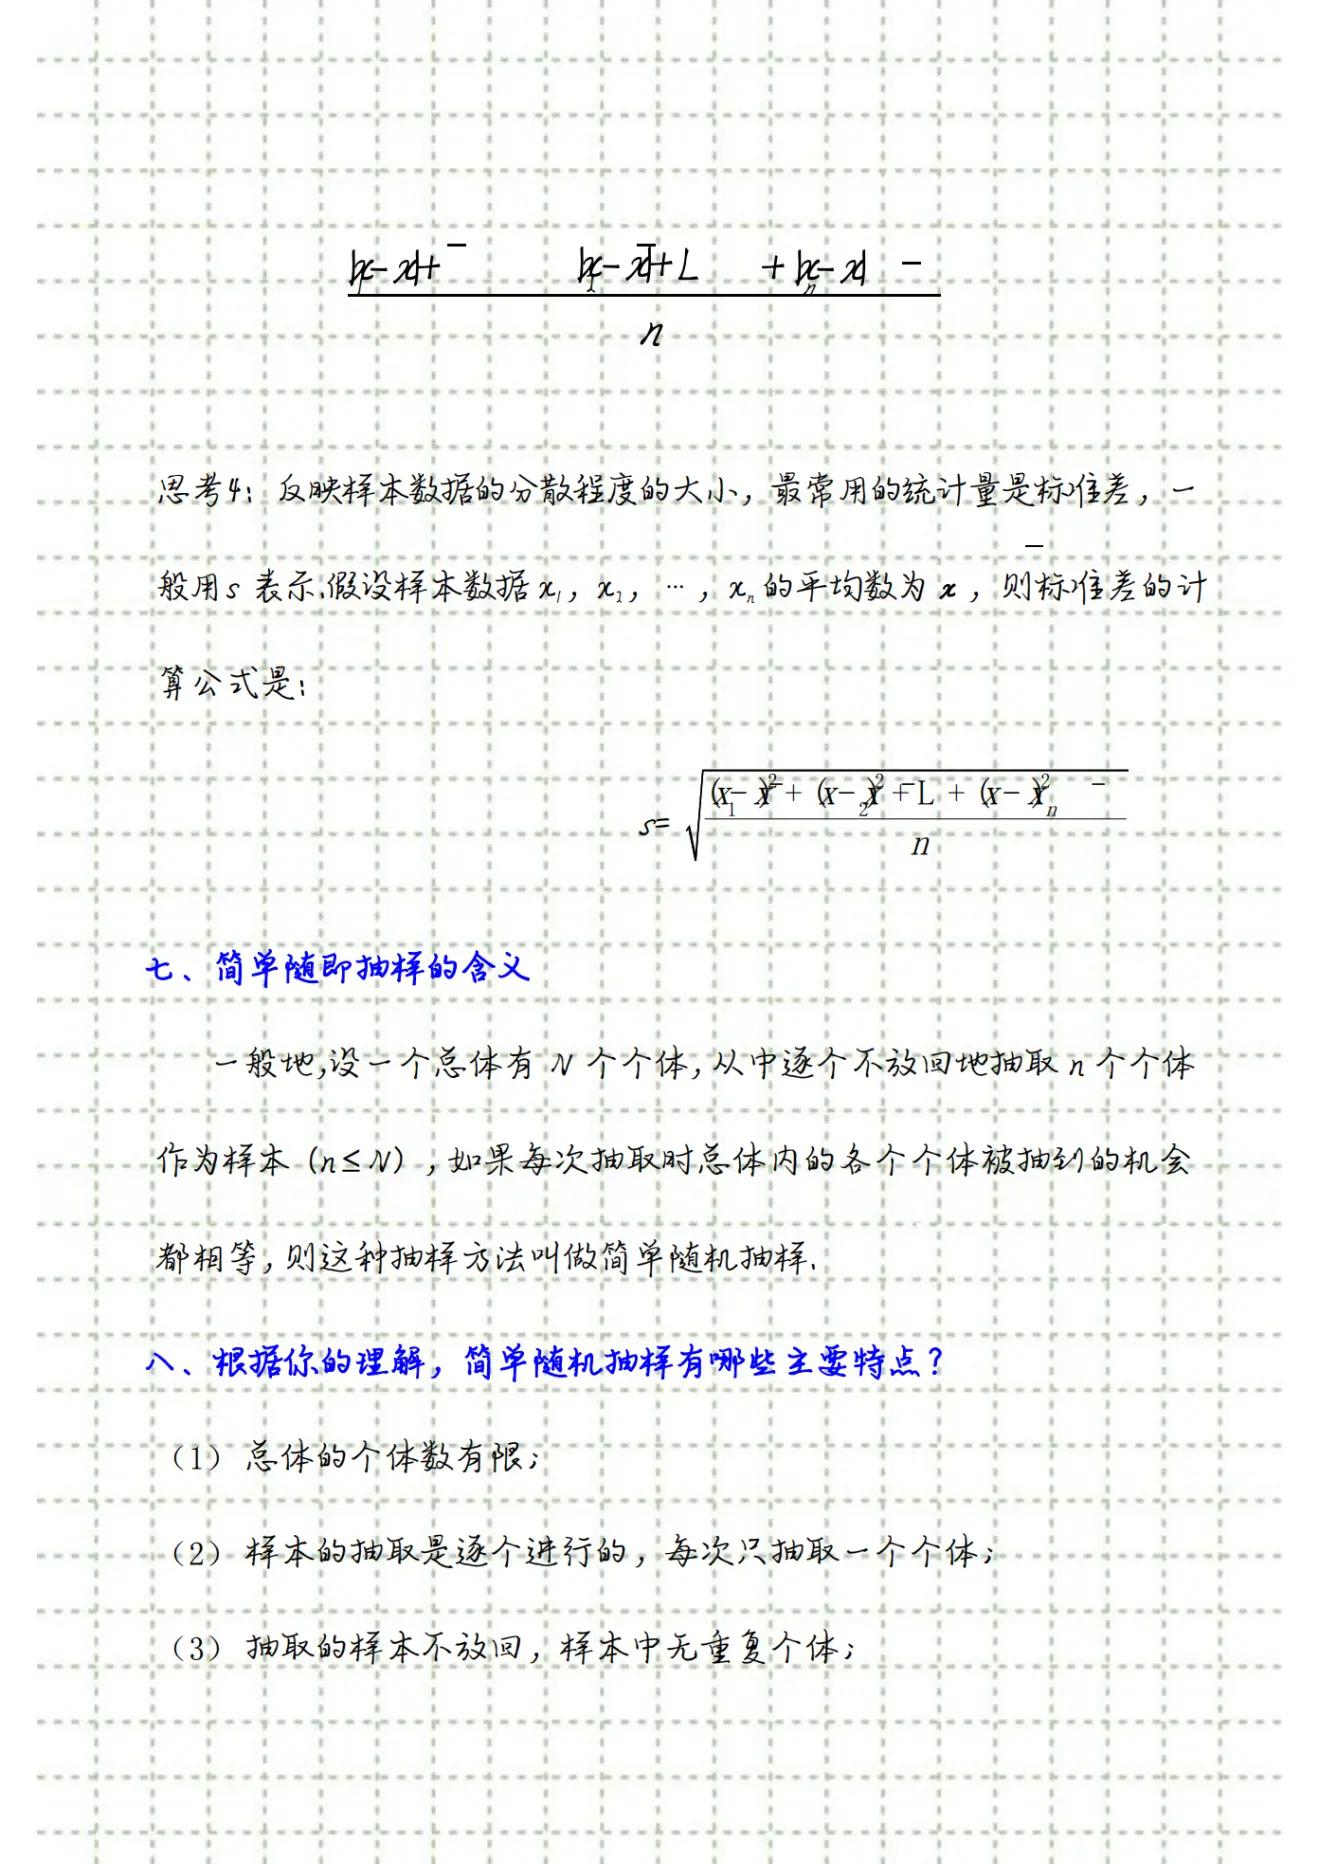 |x₁-x̄|+|x₂-x̄|+L+|xₙ-x̄|
n
思考4：反映样本数据的分散程度的大小，最常用的统计量是标准差，一
般用s 表示.假设样本数据x₁，x₂，…，xₙ的平均数为x̄，则标准差的计
算公式是：
s=√((x₁-x̄)²+(x₂-x̄)²+L+(xₙ-x̄)²
n
七、简单随即抽样的含义
一般地,设一个总体有 N 个个体,从中逐个不放回地抽取n个个体
作为样本（n≤N）,如果每次抽取时总体内的各个个体被抽到的机会
都相等,则这种抽样方法叫做简单随机抽样.
八、根据你的理解，简单随机抽样有哪些主要特点？
（1）总体的个体数有限；
（2）样本的抽取是逐个进行的，每次只抽取一个个体；
（3）抽取的样本不放回，样本中无重复个体；